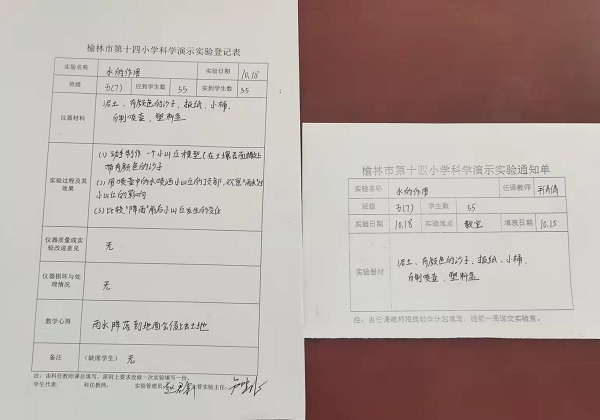 榆林市第十四小学科学演示实验登记表
实验名称 水的作用 实验日期 10.18
班级 5(7) 应到学生数 55 实到学生数 55
仪器材料 泥土、有颜色的沙子、报纸、小桶、
自制喷壶、塑料盒
实验过程及其效果
(1) 动手制作一个小山丘模型(在土壤表面撒上
带有颜色的沙子
(2) 用喷壶中的水喷洒小山丘的顶部,观察"雨水"对
小山丘的影响
(3) 比较"降雨"前后小山丘发生的变化
仪器质量或实验改进意见 无
仪器损坏与处理情况 无
教学心得 雨水降落到地面会侵蚀土地
备注 (缺席学生) 无
注:由科任教师课后填写,原则上要求按做一次实验填写一份。
学生代表: 科任教师: 实验管理员: 主管实验主任:
榆林市第十四小学科学演示实验通知单
实验名称 水的作用 任课教师
班级 5(7) 学生数 55
实验日期 10.18 实验地点 教室 填表日期 10.15
实验器材 泥土、有颜色的沙子、报纸、小桶、
自制喷壶、塑料盒
注:由任课教师根据教学计划填写,提前一周送交实验室。